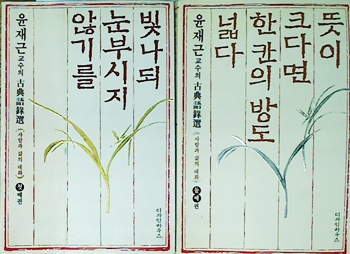 빛나되
눈부시지
않기를
윤재근 교수의 古典語錄選
(사람과 삶의 대화)
첫째권
디자인하우스
뜻이
크다면
한 칸의 방도
넓다
윤재근 교수의 古典語錄選
(사람과 삶의 대화)
둘째권
디자인하우스